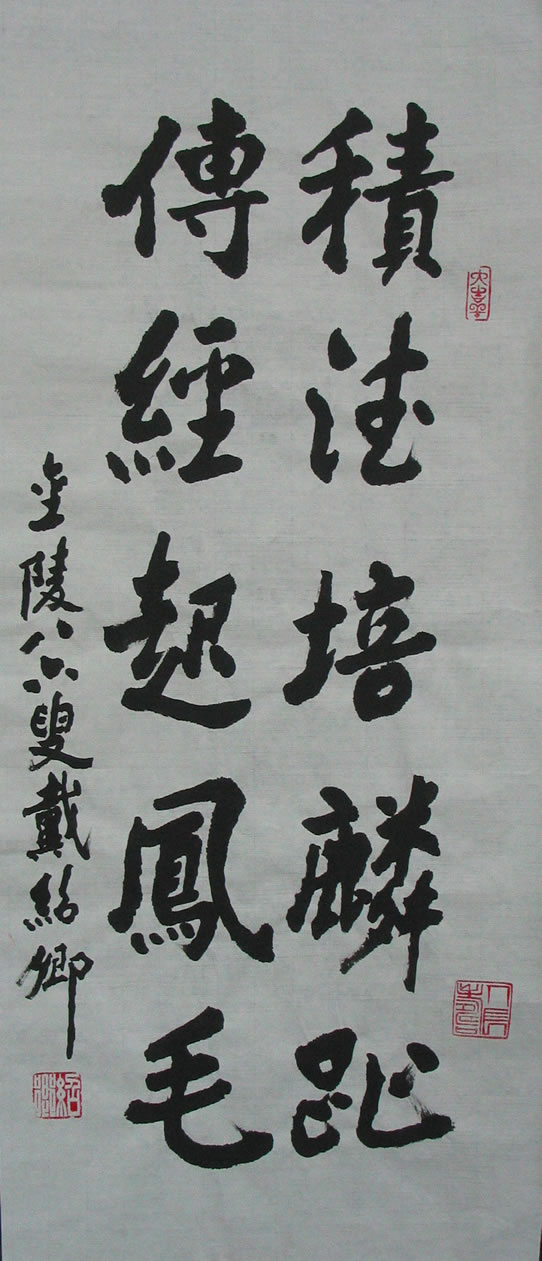 積德培麟趾
傳經起鳳毛
金陵八六叟戴紹卿
人長壽